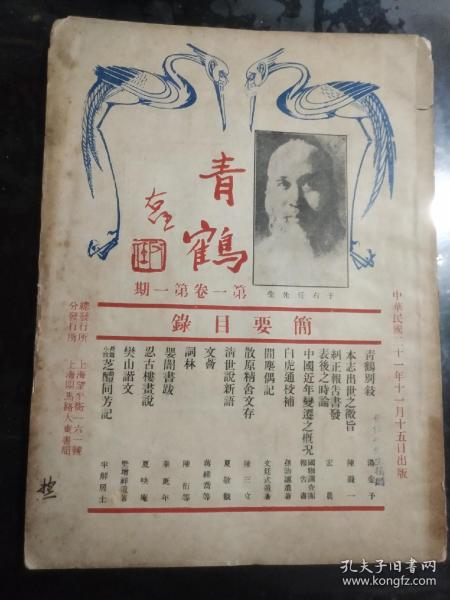 青鶴
第一卷第一期
于右任先生
簡要目錄
中華民國二十一年十一月十五日出版
青鶴別敍
本志出世之微旨 陳灨一
糾正報告書發表後之時論 宏農
中國近年變遷之概況 國聯調查團報告書
白虎通校補 孫詒讓遺著
聞塵偶記 文廷式遺著
散原精舍文存 陳三立
清世說新語 夏敬觀
文薈 蔣維喬等
詞林 陳衍等
嬰闇書跋 秦更年
忍古樓畫說 夏映庵
樊山諾文 樊增祥遺著
長篇小說 芝醞同芳記 半解居士
總發行所 上海望平街一六一號
分發行所 上海四馬路大東書局
孔夫子旧书网
book.kongfz.com